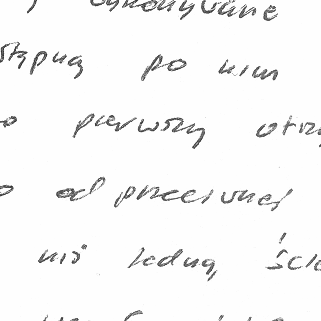 wykonywane
stępny po nim
o pierwszy otrz
o od przeciwnej
niż jedną ście